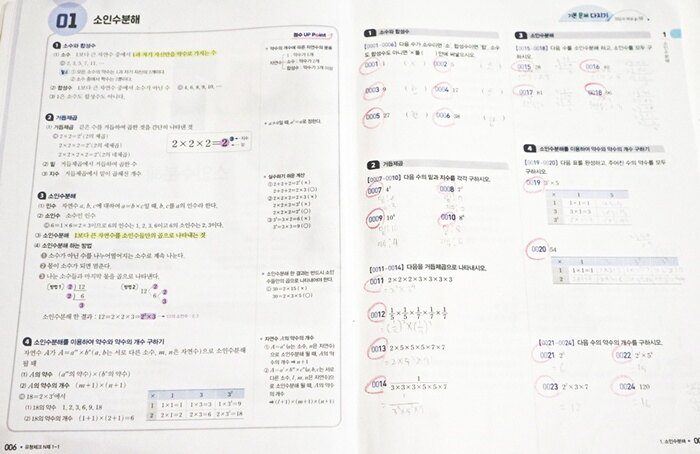 01 소인수분해
점수 UP Point
1 소수와 합성수
(1) 소수 1보다 큰 자연수 중에서 1과 자기 자신만을 약수로 가지는 수
2, 3, 5, 7, 11, …
① 모든 소수의 약수는 1과 자기 자신의 2개이다.
② 소수 중에서 짝수는 2뿐이다.
(2) 합성수 1보다 큰 자연수 중에서 소수가 아닌 수 4, 6, 8, 9, 10, …
(3) 1은 소수도 합성수도 아니다.
• 약수의 개수에 따른 자연수의 분류
1 : 약수가 1개
자연수 소수 : 약수가 2개
합성수 : 약수가 3개 이상
2 거듭제곱
(1) 거듭제곱 같은 수를 거듭하여 곱한 것을 간단히 나타낸 것
2×2=2² (2의 제곱)
2×2×2=2³ (2의 세제곱)
2×2×2×2=2⁴ (2의 네제곱)
2×2×2=2³ 지수 밑
(2) 밑 거듭제곱에서 거듭하여 곱한 수
(3) 지수 거듭제곱에서 밑이 곱해진 개수
• 실수하기 쉬운 계산
① 2+2+2=2³ (×)
2×2×2=2³ (○)
② 2×2×2=2×3 (×)
2+2+2=2×3 (○)
③ 3²=3×2=6 (×)
3²=3×3=9 (○)
3 소인수분해
(1) 인수 자연수 a, b, c에 대하여 a=b×c일 때, b, c를 a의 인수라 한다.
(2) 소인수 소수인 인수
6=1×6=2×3이므로 6의 인수는 1, 2, 3, 6이고 6의 소인수는 2, 3이다.
(3) 소인수분해 1보다 큰 자연수를 소인수들만의 곱으로 나타내는 것
(4) 소인수분해 하는 방법
❶ 소수가 아닌 수를 나누어떨어지는 소수로 계속 나눈다.
❷ 몫이 소수가 되면 멈춘다.
❸ 나눈 소수들과 마지막 몫을 곱으로 나타낸다.
방법1 2 ) 12 방법2 12 2
2 ) 6 6 2
3 3
소인수분해 한 결과 : 12=2×2×3=2²×3
• 소인수분해 한 결과는 반드시 소인
수들만의 곱으로 나타내어야 한다.
① 30=2×15 (×)
30=2×3×5 (○)
4 소인수분해를 이용하여 약수와 약수의 개수 구하기
자연수 A가 A=aᵐ×bⁿ (a, b는 서로 다른 소수, m, n은 자연수)으로 소인수분해
될 때
(1) A의 약수 (aᵐ의 약수)×(bⁿ의 약수)
(2) A의 약수의 개수 (m+1)×(n+1)
18=2×3²에서
(1) 18의 약수 1, 2, 3, 6, 9, 18
(2) 18의 약수의 개수 (1+1)×(2+1)=6
× 1 3 3²
1 1×1=1 1×3=3 1×3²=9
2 2×1=2 2×3=6 2×3²=18
• 자연수 A의 약수의 개수
006 • 유형체크 N제 1-1
기본 문제 다지기
1 소수와 합성수
[0001~0006] 다음 수가 소수이면 '소', 합성수이면 '합', 소수
도 합성수도 아니면 '×'를 ( ) 안에 써넣으시오.
0001 1 0002 5
0003 9 0004 17
0005 27 0006 38
2 거듭제곱
[0007~0010] 다음 수의 밑과 지수를 각각 구하시오.
0007 4³ 0008 7²
0009 10⁴ 0010 8⁹
[0011~0014] 다음을 거듭제곱으로 나타내시오.
0011 2×2×2×3×3×3×3
0012 1/5×1/5×1/7×1/7×1/7
0013 2×5×5×7×7
0014 1/(3×3×3×5×5×7)
3 소인수분해
[0015~0018] 다음 수를 소인수분해 하고, 소인수를 모두 구
하시오.
0015 28 0016 36
0017 81 0018 96
4 소인수분해를 이용하여 약수와 약수의 개수 구하기
[0019~0020] 다음 표를 완성하고, 주어진 수의 약수를 모두
구하시오.
0019 3²×5
× 1 5
1 1×1=1
3 3×1=3
0020 54
× 1
1 1×1=1
2
[0021~0024] 다음 수의 약수의 개수를 구하시오.
0021 2⁶ 0022 2⁴×5²
0023 2²×3×7 0024 120
1. 소인수분해 •